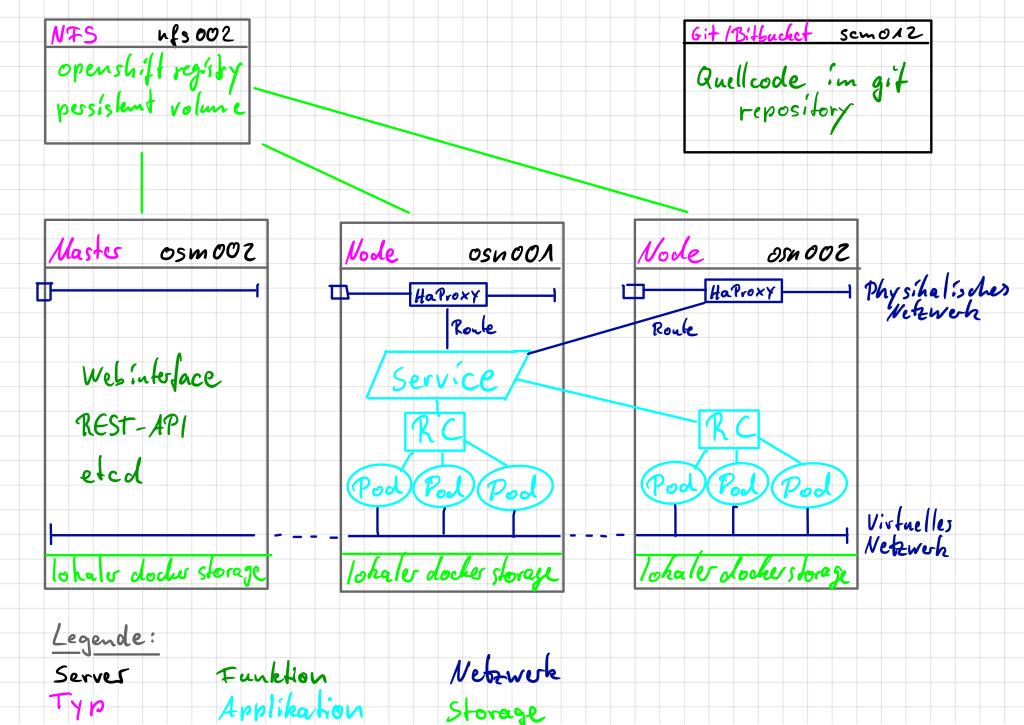 NFS nfs002
openshift registry
persistent volume
Git/Bitbucket scm012
Quellcode im git
repository
Master osm002
Webinterface
REST-API
etcd
lokaler docker storage
Node osn001
HaProxy
Route
Service
RC
Pod Pod Pod
lokaler docker storage
Node osn002
HaProxy
Route
RC
Pod Pod Pod
lokaler docker storage
Physikalisches
Netzwerk
Virtuelles
Netzwerk
Legende:
Server Funktion Netzwerk
Typ Applikation Storage